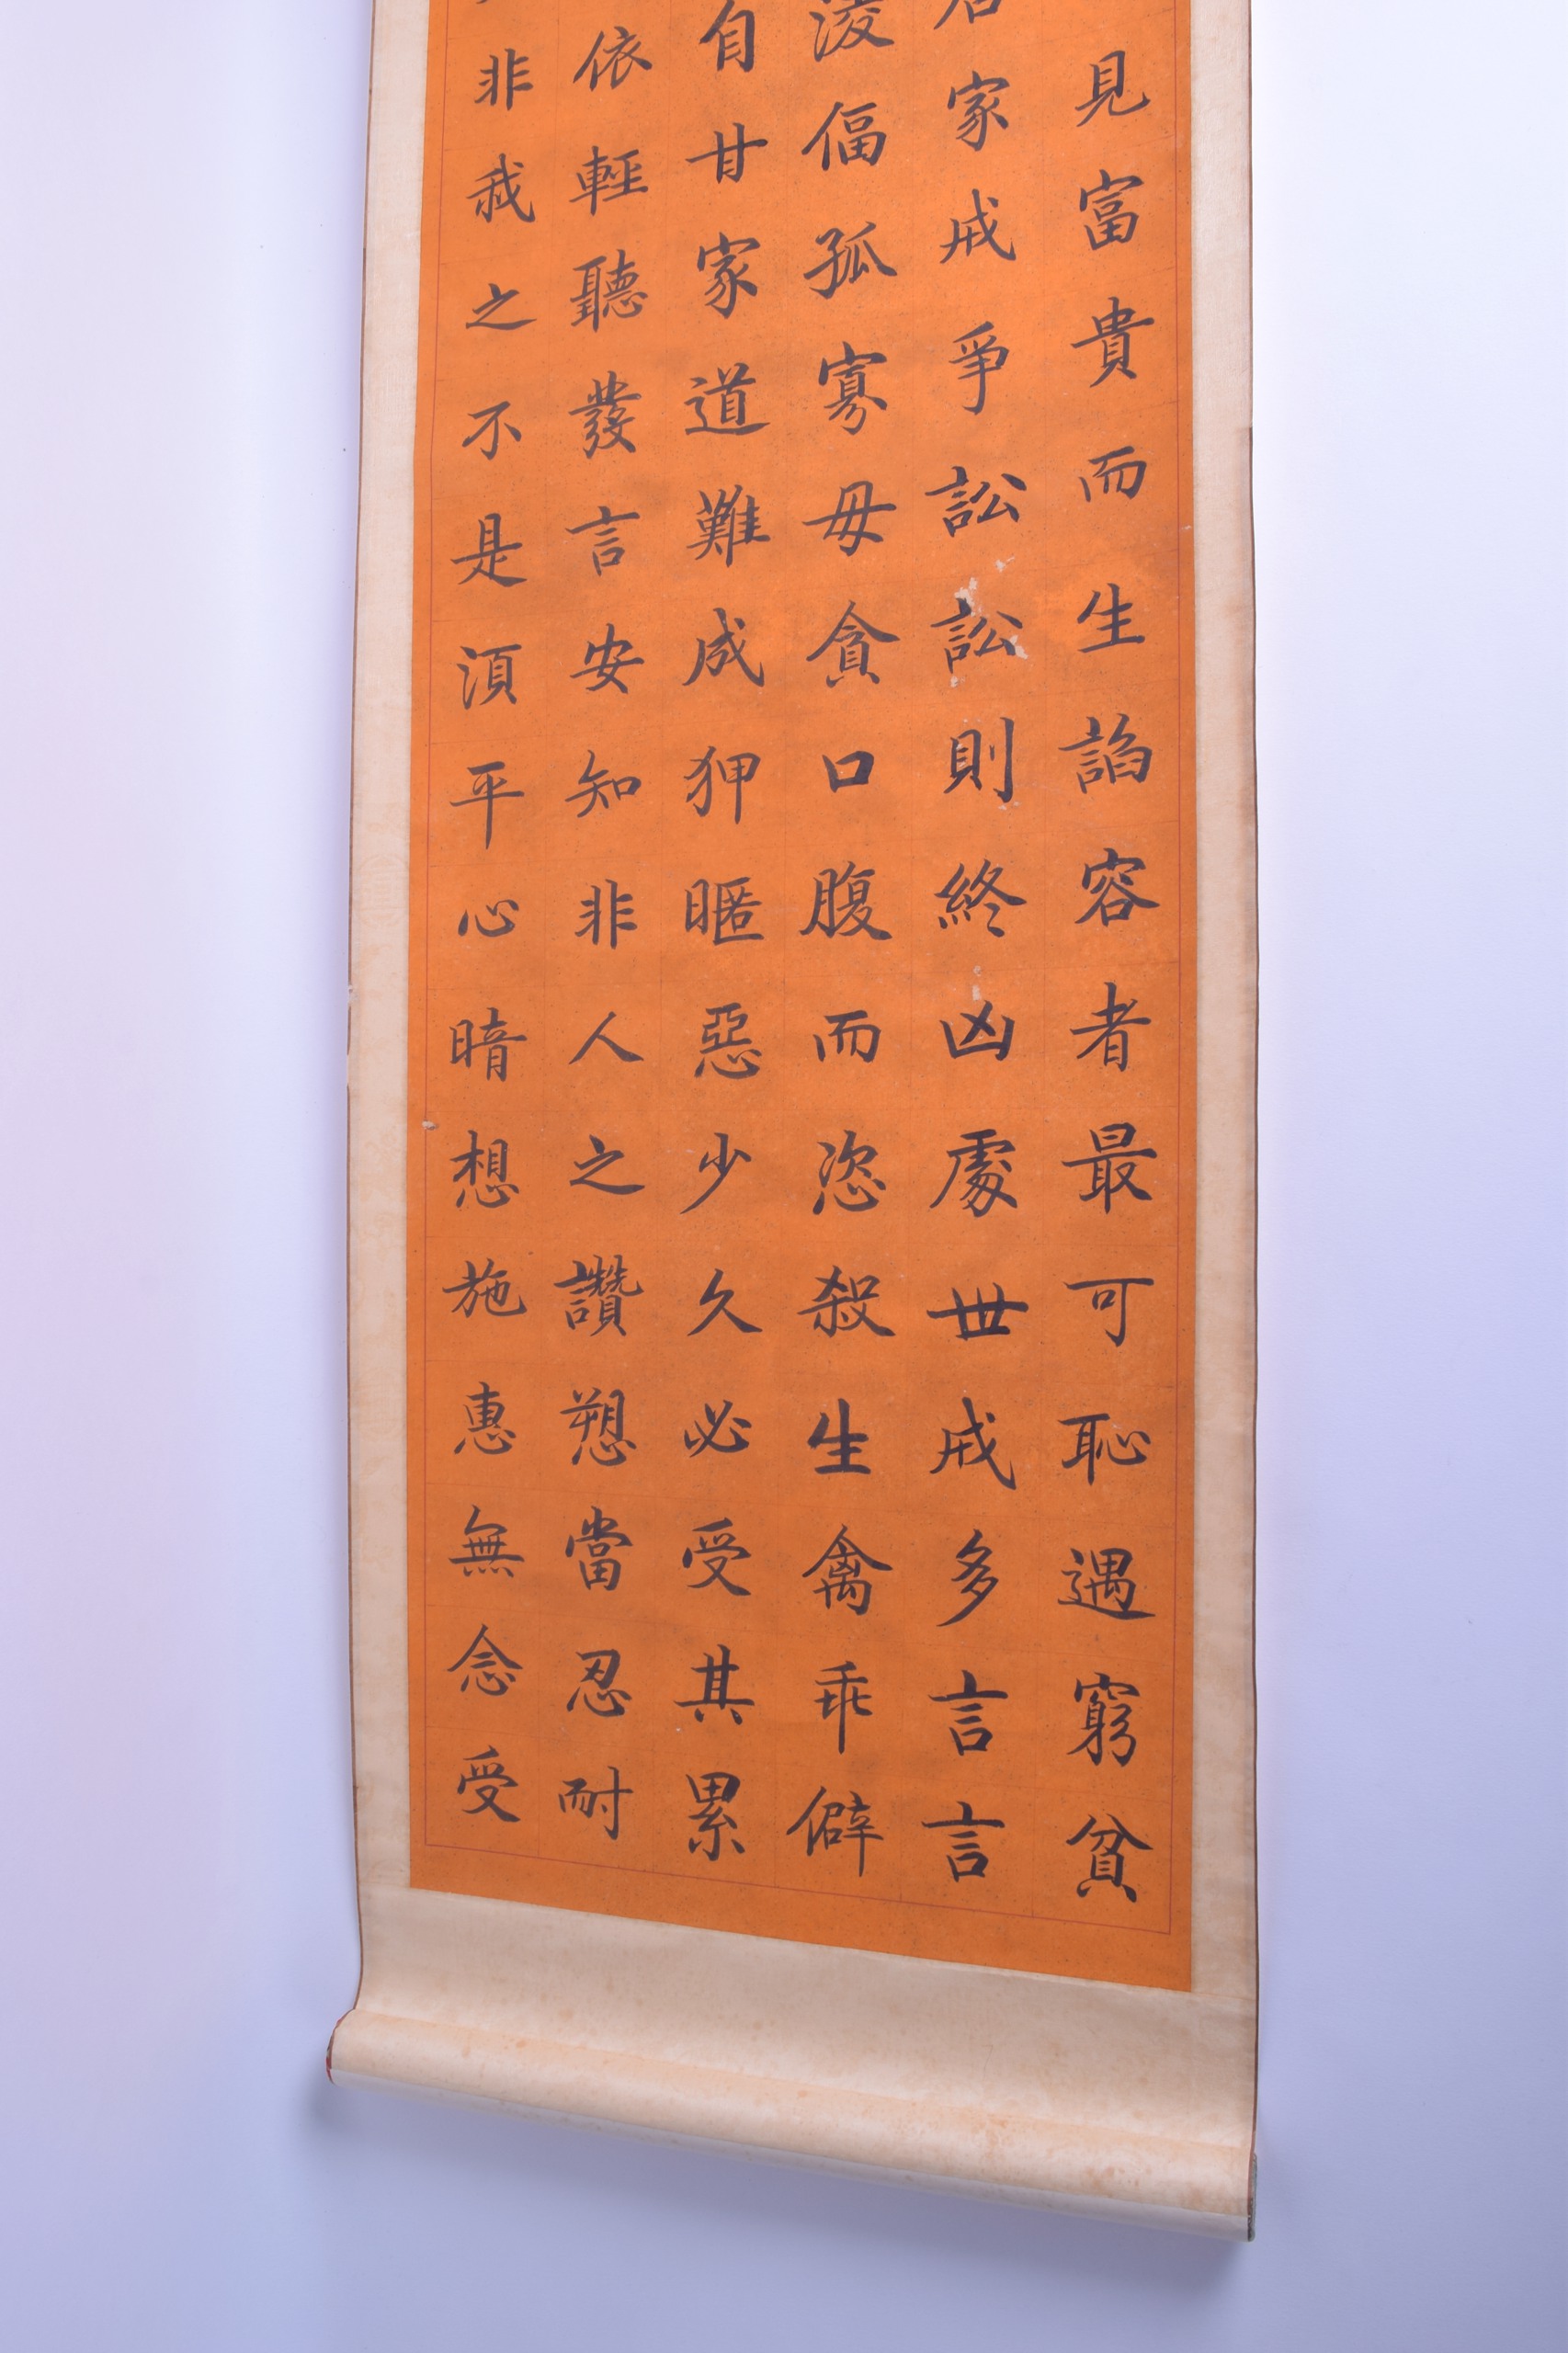 見富貴而生諂容者最可恥遇窮貧
家戒爭訟訟則終凶處世戒多言言
淩偪孤寡毋貪口腹而恣殺生禽乖僻
自甘家道難成狎暱惡少久必受其累
依輕聽發言安知非人之讚愬當忍耐
非我之不是須平心暗想施惠無念受